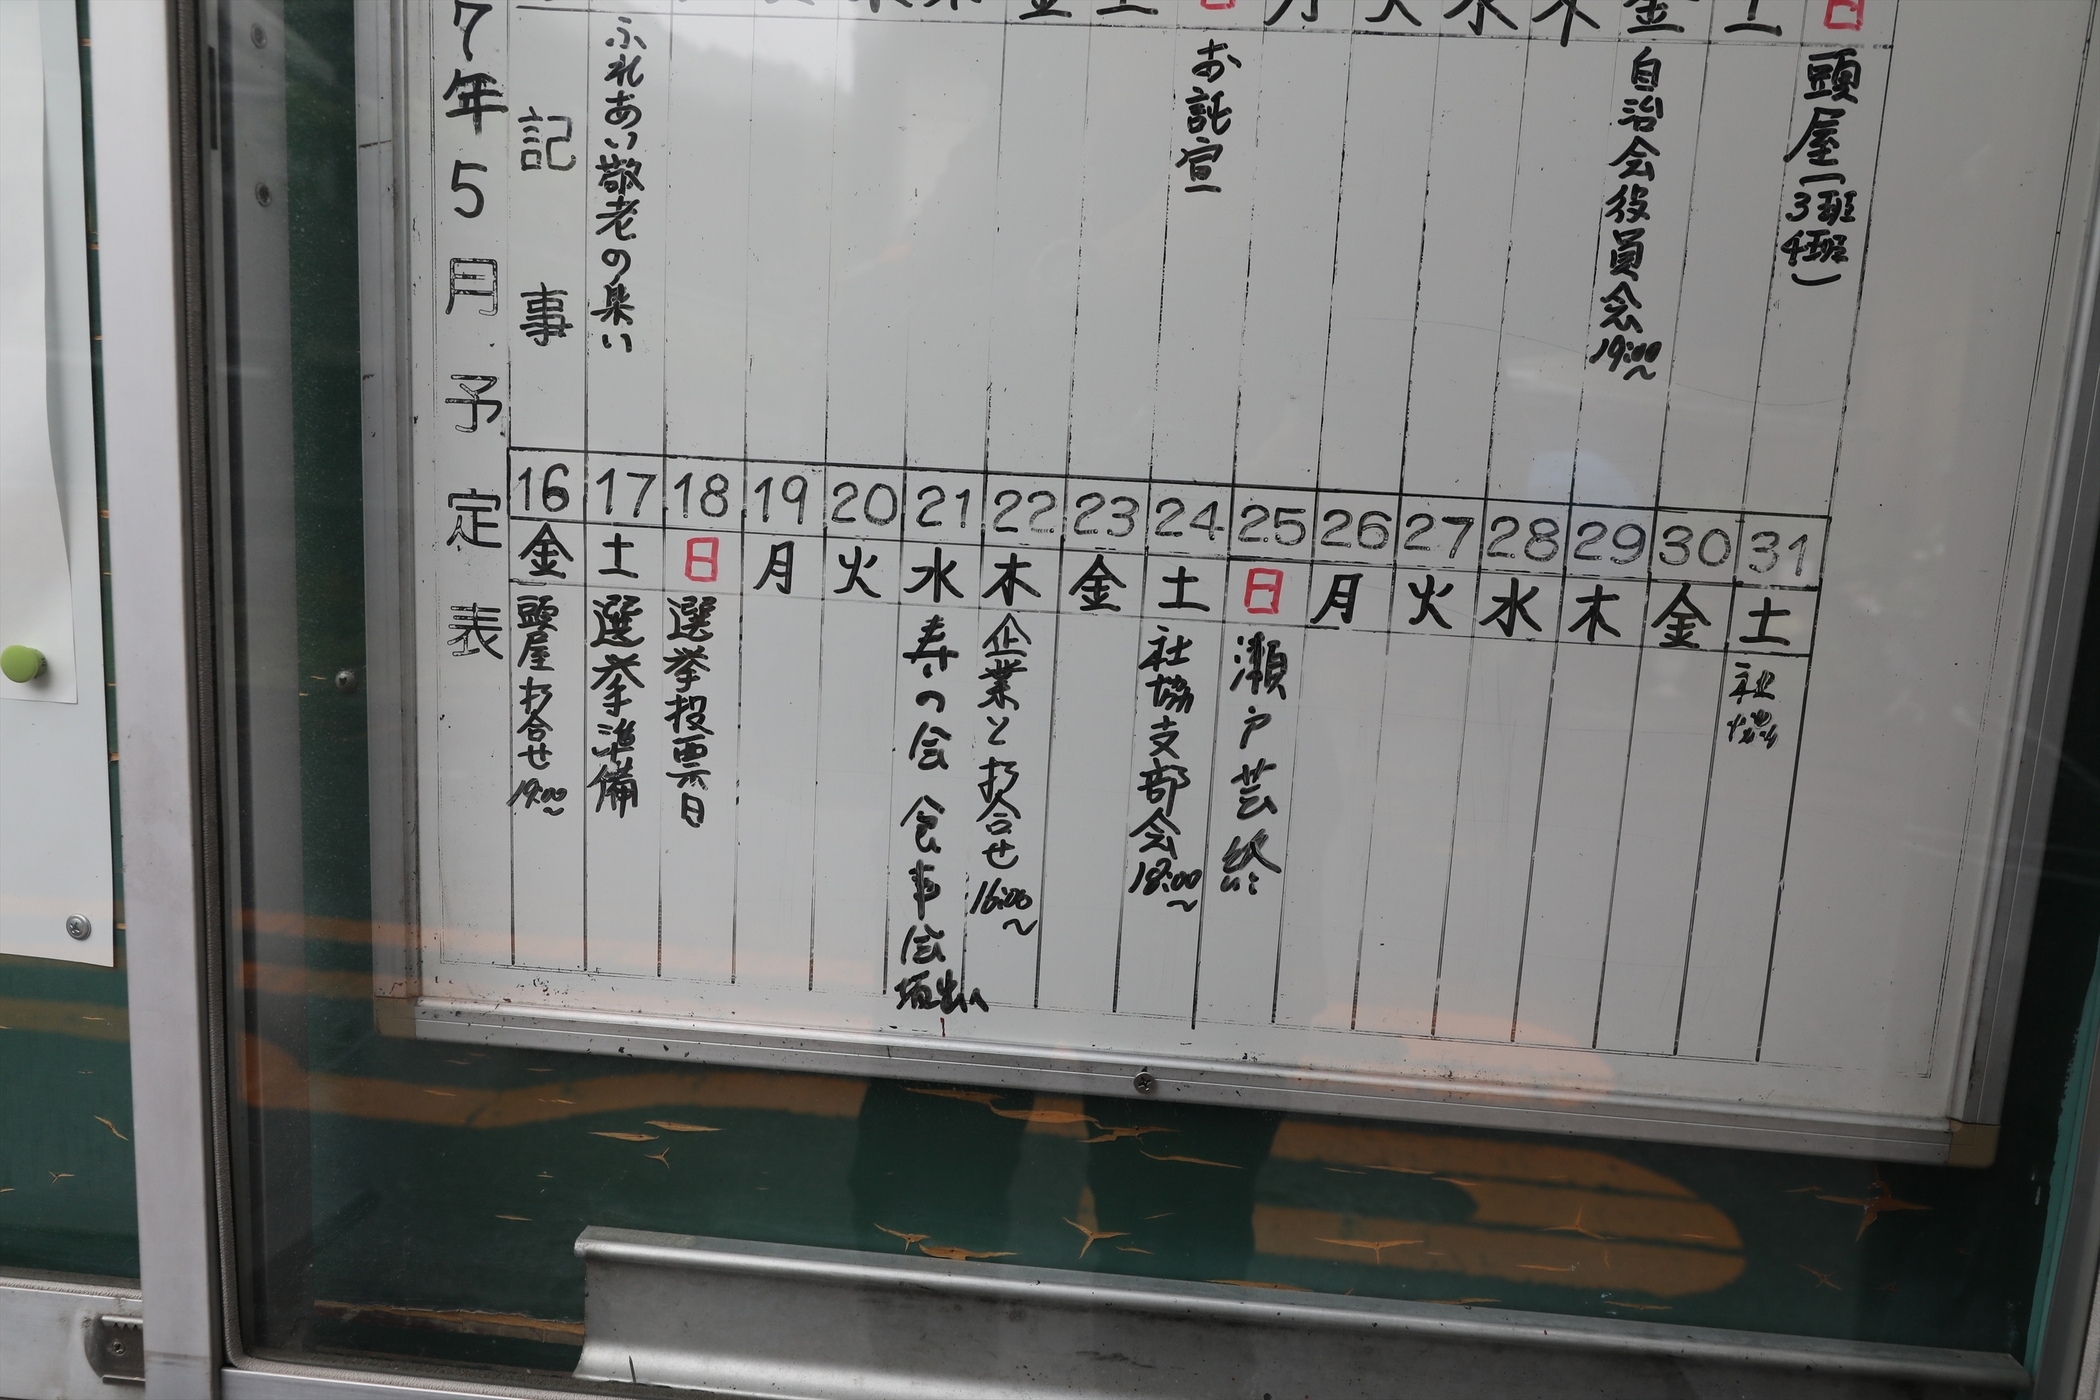 7年5月予定表
記事
ふれあい敬老の集い
お託宣
自治会役員会
19:00~
頭屋(3班
4班)
16 17 18 19 20 21 22 23 24 25 26 27 28 29 30 31
金 土 日 月 火 水 木 金 土 日 月 火 水 木 金 土
頭屋打合せ
19:00~
選挙準備
選挙投票日
寿の会 食事会
企業と打合せ
16:00~
社協支部会
18:00~
瀬戸芸終